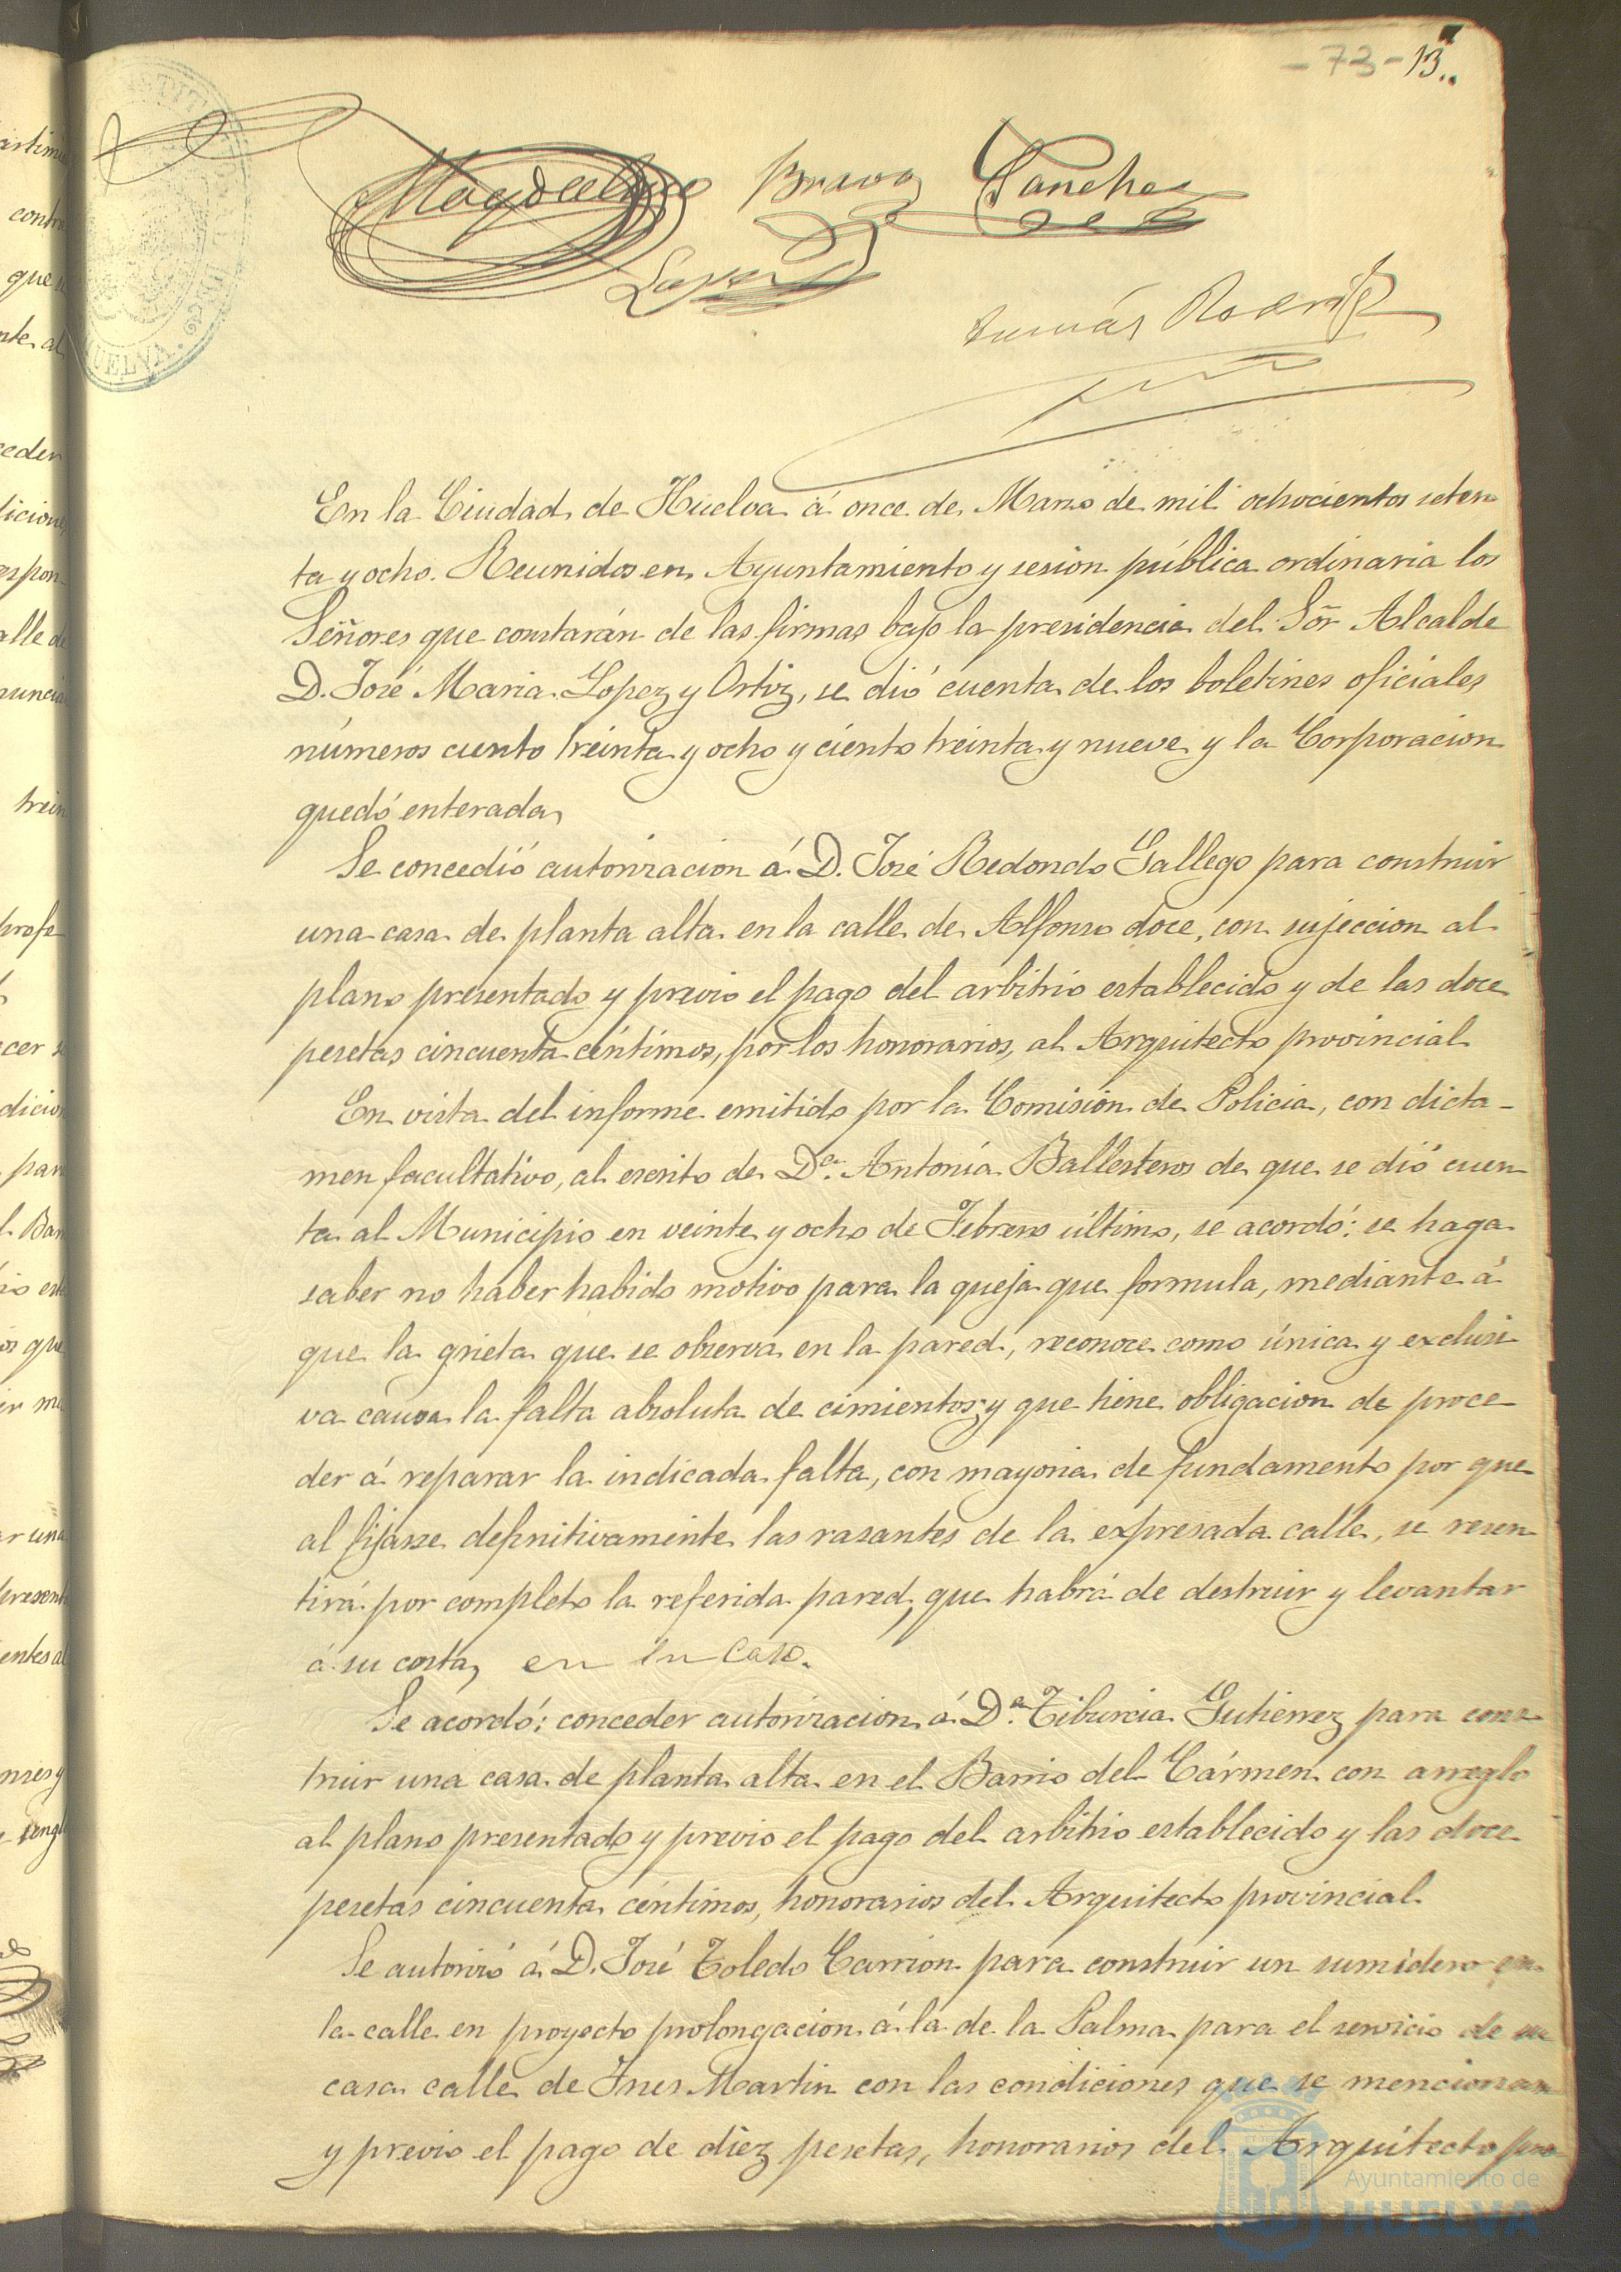 - 73 - 13.
Magdalena Bravo Sanchez
Lopez
Tomás Rodrig
En la Ciudad de Huelva á once de Marzo de mil ochocientos seten
ta y ocho. Reunidos en Ayuntamiento y sesion pública ordinaria los
Señores que constarán de las firmas bajo la presidencia del Sõr Alcalde
D. José Maria Lopez y Ortiz, se dió cuenta de los boletines oficiales
números ciento treinta y ocho y ciento treinta y nueve y la Corporacion
quedó enterada,
Se concedió autorizacion á D. José Redondo Gallego para construir
una casa de planta alta en la calle de Alfonso doce, con sujeccion al
plano presentado y previo el pago del arbitrio establecido y de las doce
pesetas cincuenta céntimos, por los honorarios, al Arquitecto provincial
En vista del informe emitido por la Comision de Policia, con dicta-
men facultativo, al escrito de Dª. Antonia Ballesteros de que se dió cuen
ta al Municipio en veinte y ocho de Febrero último, se acordó: se haga
saber no haber habido motivo para la queja que formula, mediante á
que la grieta que se observa en la pared, reconoce como única y exclusi
va causa la falta absoluta de cimientos; y que tiene obligacion de proce
der á reparar la indicada falta, con mayoria de fundamento por que
al fijarse definitivamente las rasantes de la expresada calle, se resen
tirá por completo la referida pared, que habrá de destruir y levantar
á su costa, en su caso.
Se acordó: conceder autorizacion á Dª. Tiburcia Gutierrez para cons
truir una casa de planta alta en el Barrio del Cármen con arreglo
al plano presentado y previo el pago del arbitrio establecido y las doce
pesetas cincuenta céntimos, honorarios del Arquitecto provincial.
Se autorizó á D. José Toledo Carrion para construir un sumidero en
la calle en proyecto prolongacion á la de la Palma para el servicio de su
casa calle de Ines Martin con las condiciones que se mencionan
y previo el pago de diez pesetas, honorarios del Arquitecto pro
Ayuntamiento de
HUELVA